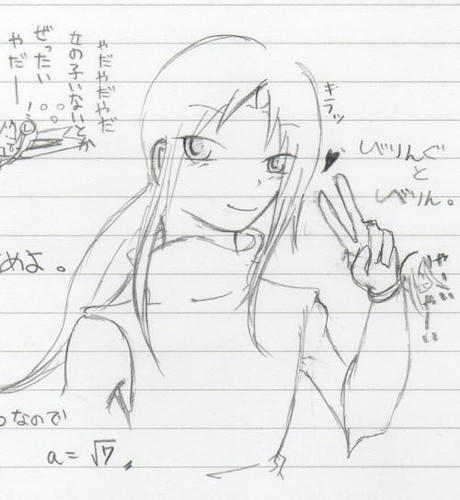 やだやだやだ
女の子いないとか
ぜったい
やだー!
キラッ
しべりんぐ
と
しべりん。
めよ。
なので
a=√7